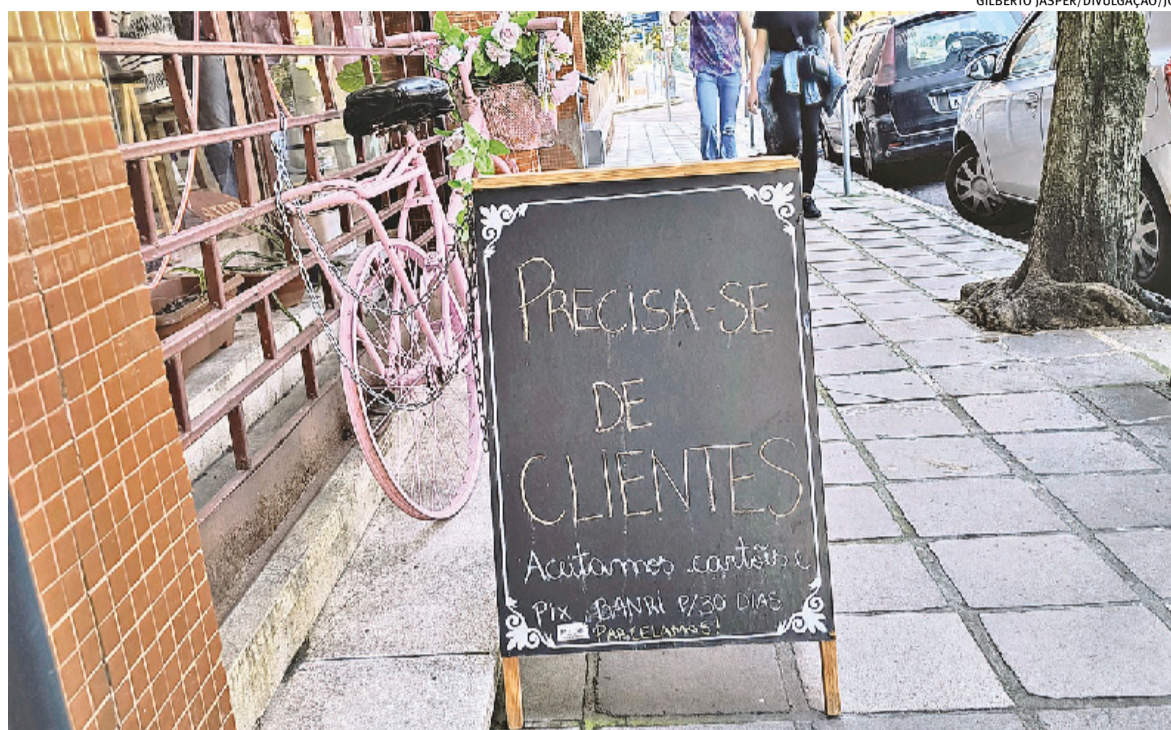 GILBERTO JASPER/DIVULGAÇÃO/JC
PRECISA-SE
DE
CLIENTES
Aceitamos cartões e
PIX BANRI P/30 DIAS
PARCELAMOS!